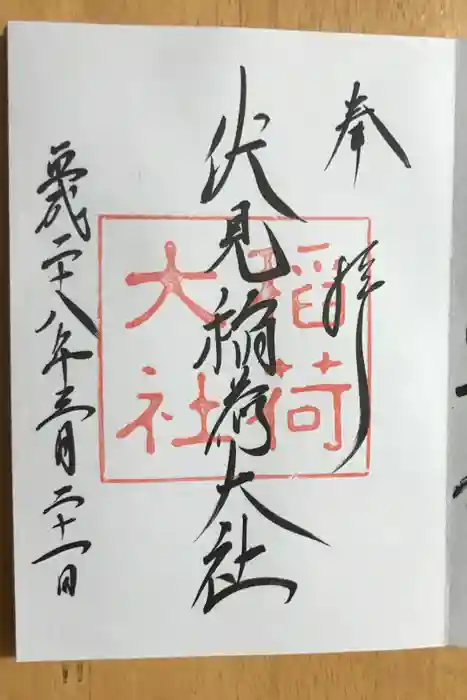 奉拝
伏見稲荷大社
稲荷
大社
平成二十八年三月二十一日